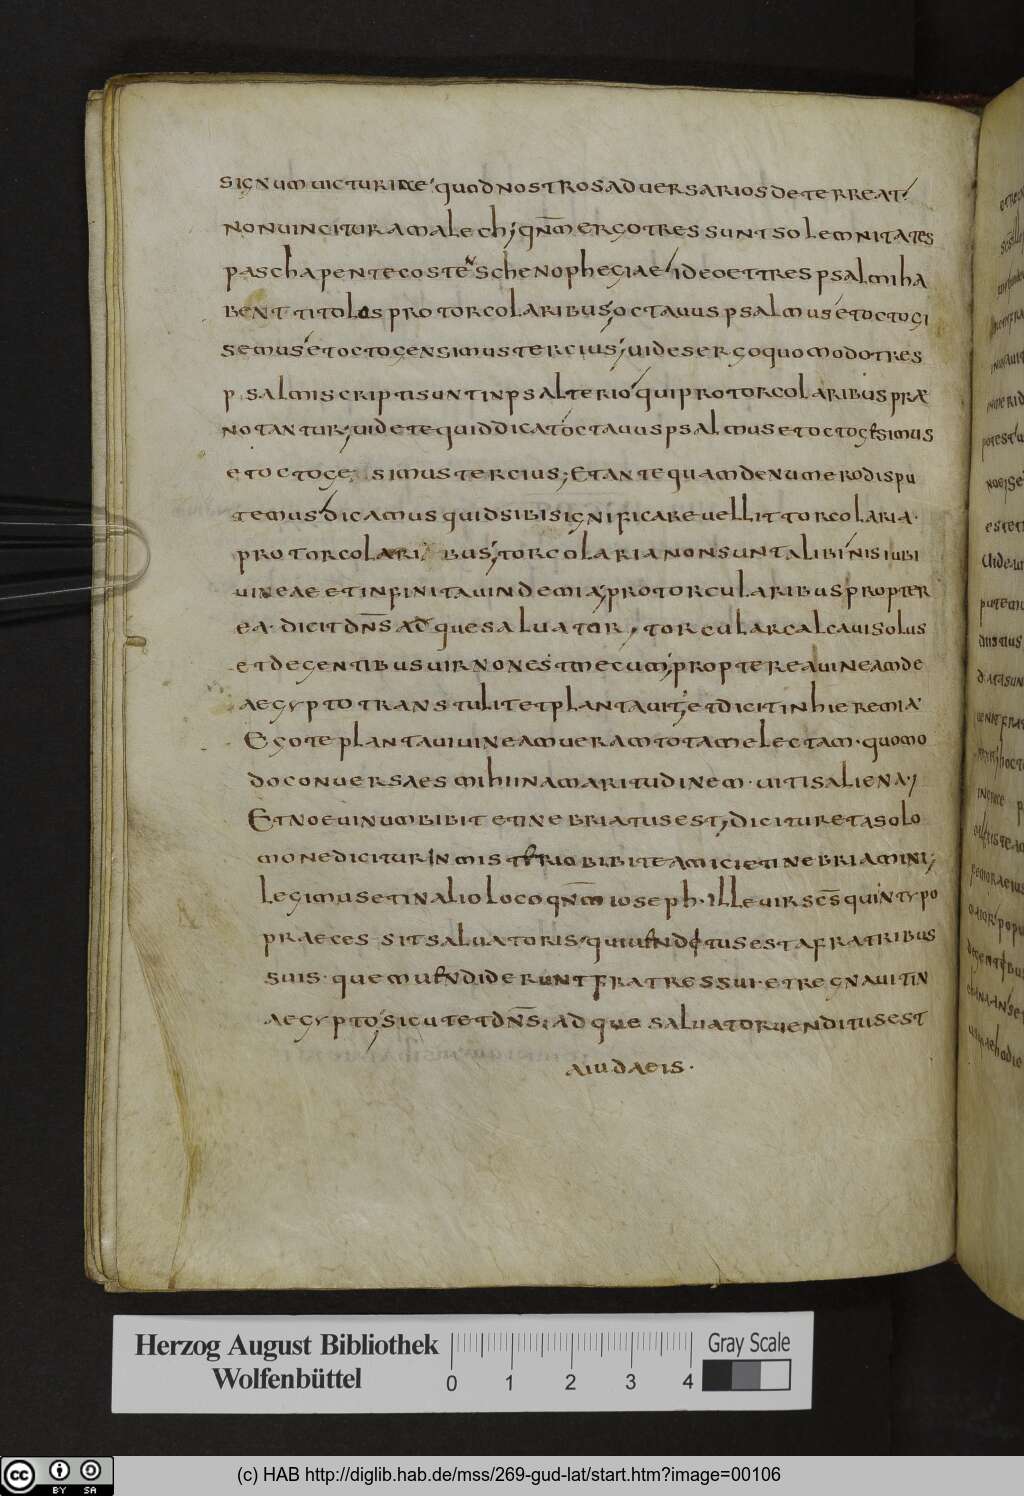 signum uicturiae quod nostros aduersarios deterreat
non uincitur amalech; qnm ergo tres sunt solemnitates
pascha pentecosten schenophegiae ideo et tres psalmi ha
bent titolos pro torcolaribus; octauus psalmus et octogi
semus et octogensimus tercius; uides ergo quomodo tres
psalmi scripti sunt in psalterio qui pro torcolaribus præ
notantur; uidete quid dicat octauus psalmus et octogesimus
et octoge simus tercius; Et antequam de numero dispu
temus dicamus quid sibi significare uellit torcolaria.
pro torcolari bus; torcolaria non sunt alibi nisi ubi
uineae et infinita uindemia; pro torcularibus propter
ea. dicit dns adque saluator, torcular calcaui solus
et de gentibus uir non est mecum; propterea uineam de
aegypto transtulit et plantauit; et dicit in hieremia
Ego te plantaui uineam ueram totam electam. quomo
do conuersa es mihi in amaritudinem. uitis aliena;
Et noe uinum bibit et inebriatus est; dicitur et a solo
mone dicitur in misterio bibite amici et inebriamini;
Legimus et in alio loco qnm ioseph. ille uir scs qui in typo
praecessit saluatoris qui uenditus est a fratribus
suis. quem uendiderunt fratres sui. et regnauit in
aegypto; sicut et dns adque saluator uenditus est
a iudaeis.
Herzog August Bibliothek
Wolfenbüttel
0 1 2 3 4
Gray Scale
cc BY SA
(c) HAB http://diglib.hab.de/mss/269-gud-lat/start.htm?image=00106